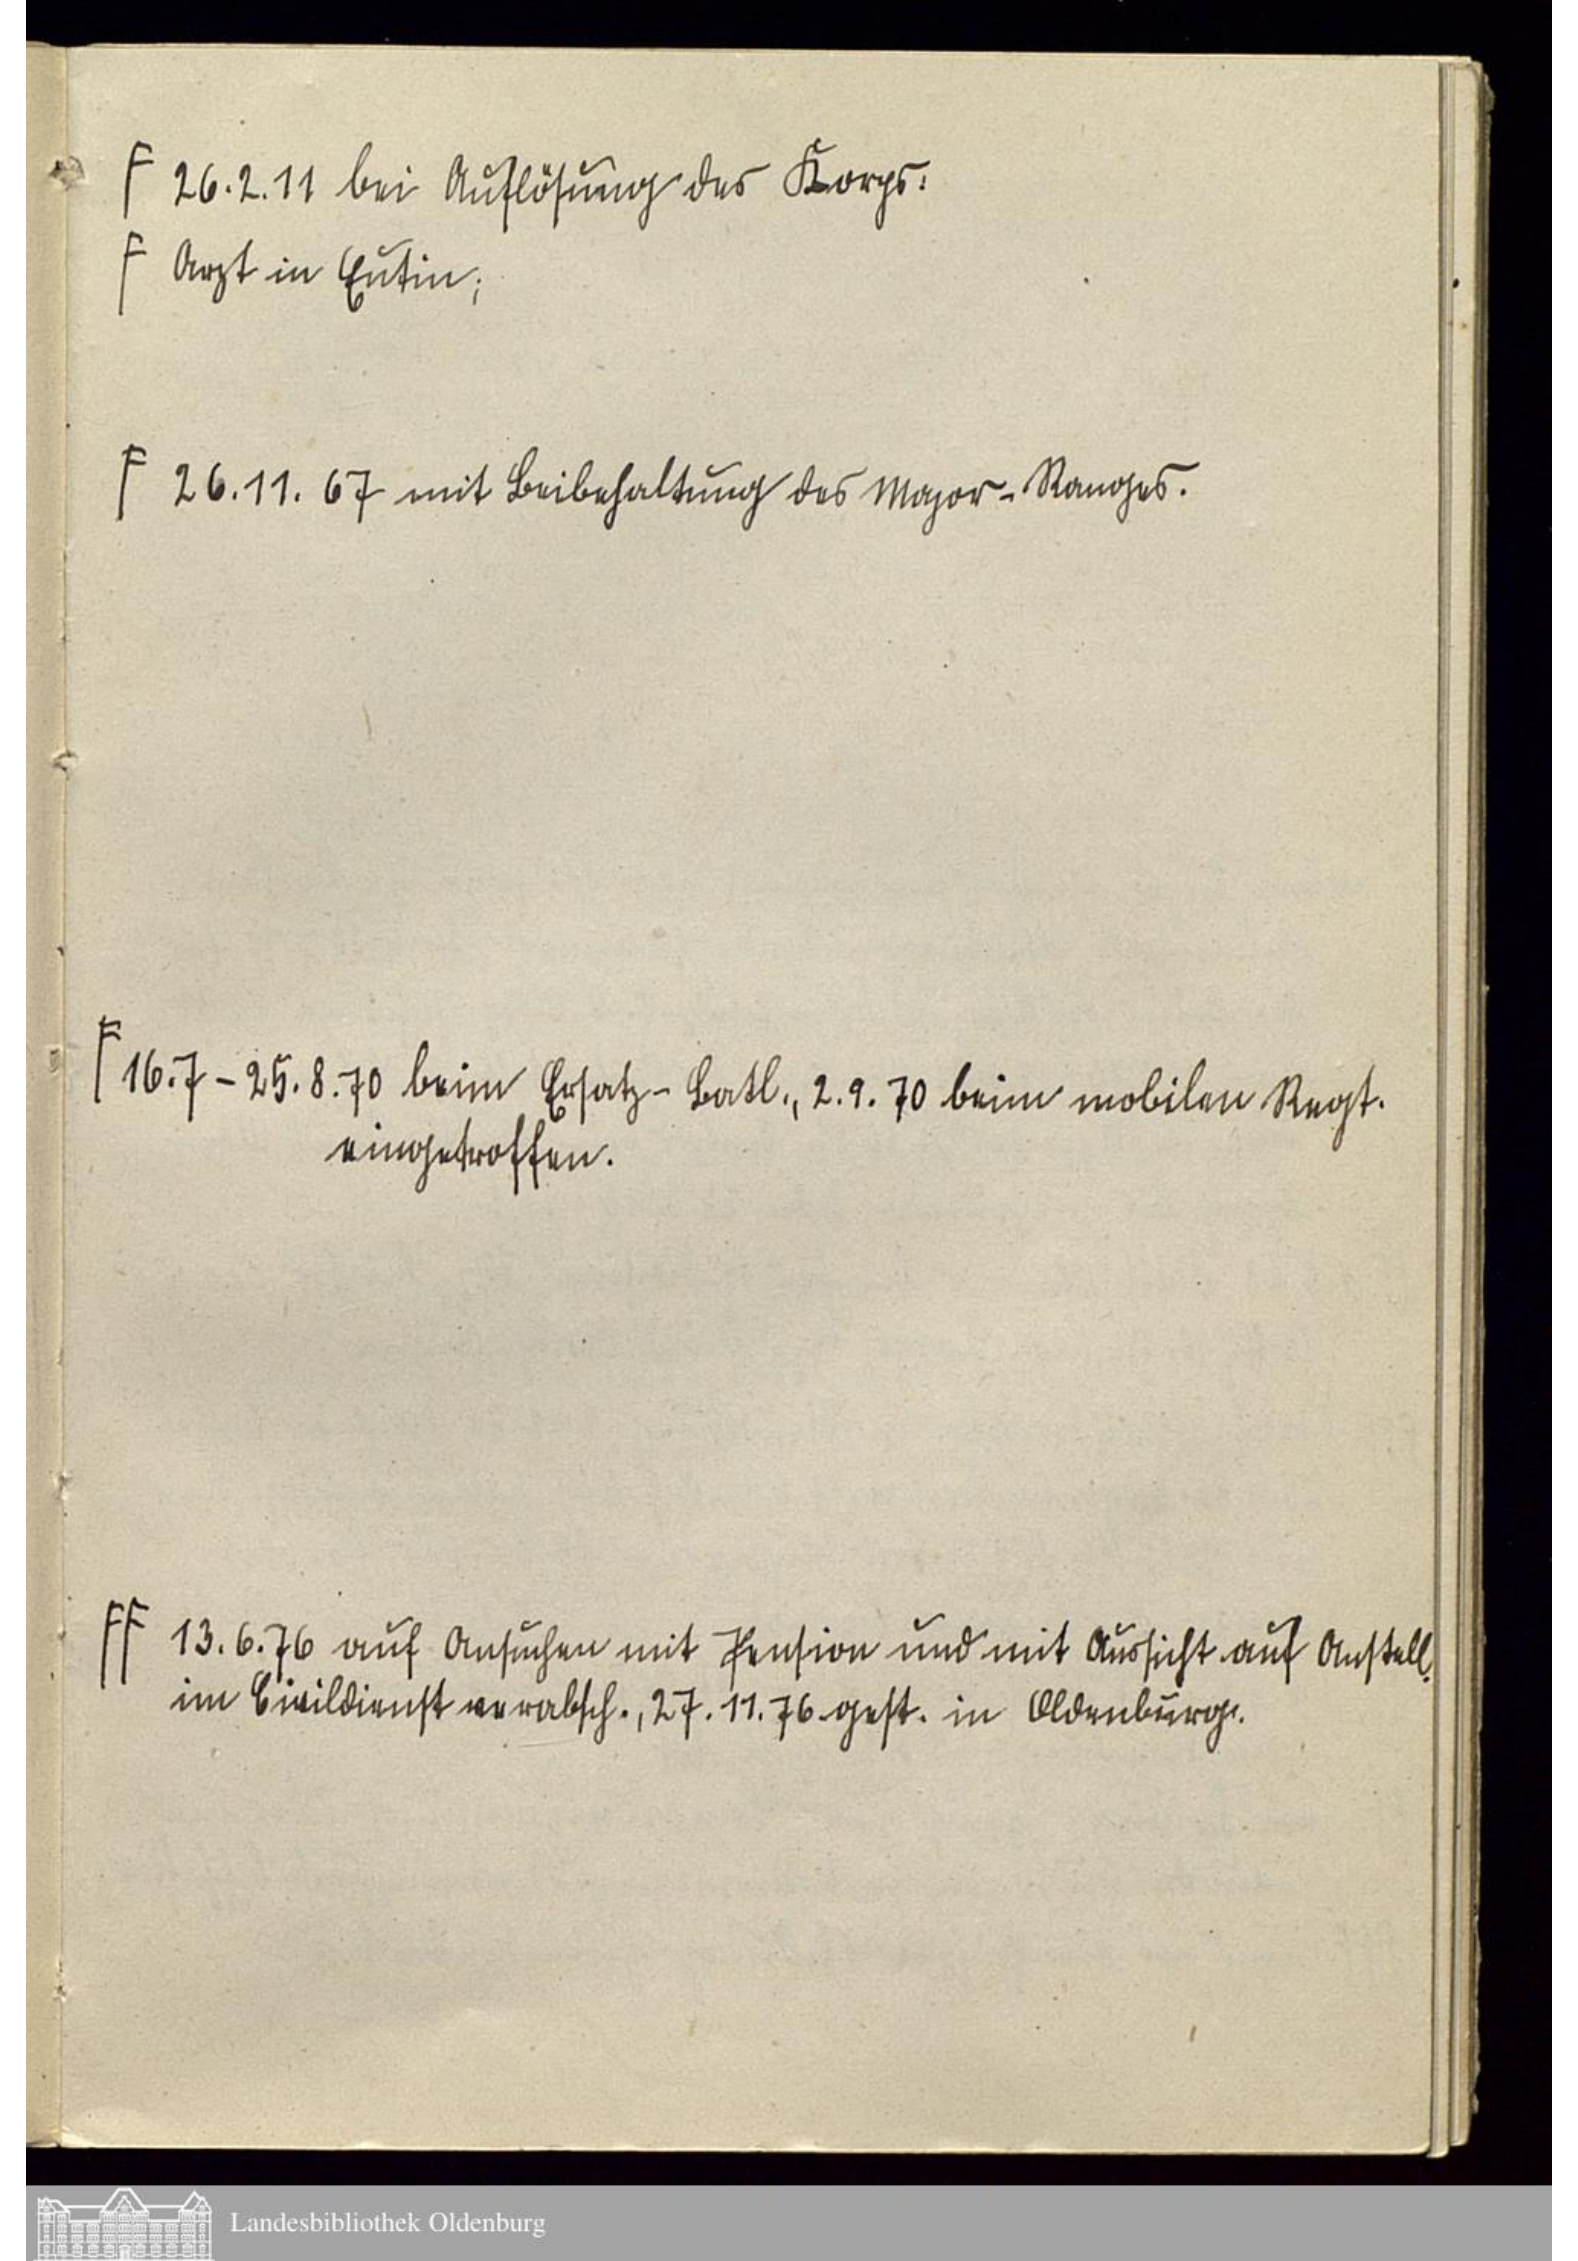 F 26.2.11 bei Auflösung des Korps.
F Arzt in Eutin;
F 26.11.67 mit Beibehaltung des Major-Ranges.
F 16.7 - 25.8.70 beim Ersatz-Batl., 2.9.70 beim mobilen Regt.
eingetroffen.
FF 13.6.76 auf Ansuchen mit Pension und mit Aussicht auf Anstell.
im Civildienst verabsch., 27.11.76 gest. in Oldenburg.
Landesbibliothek Oldenburg